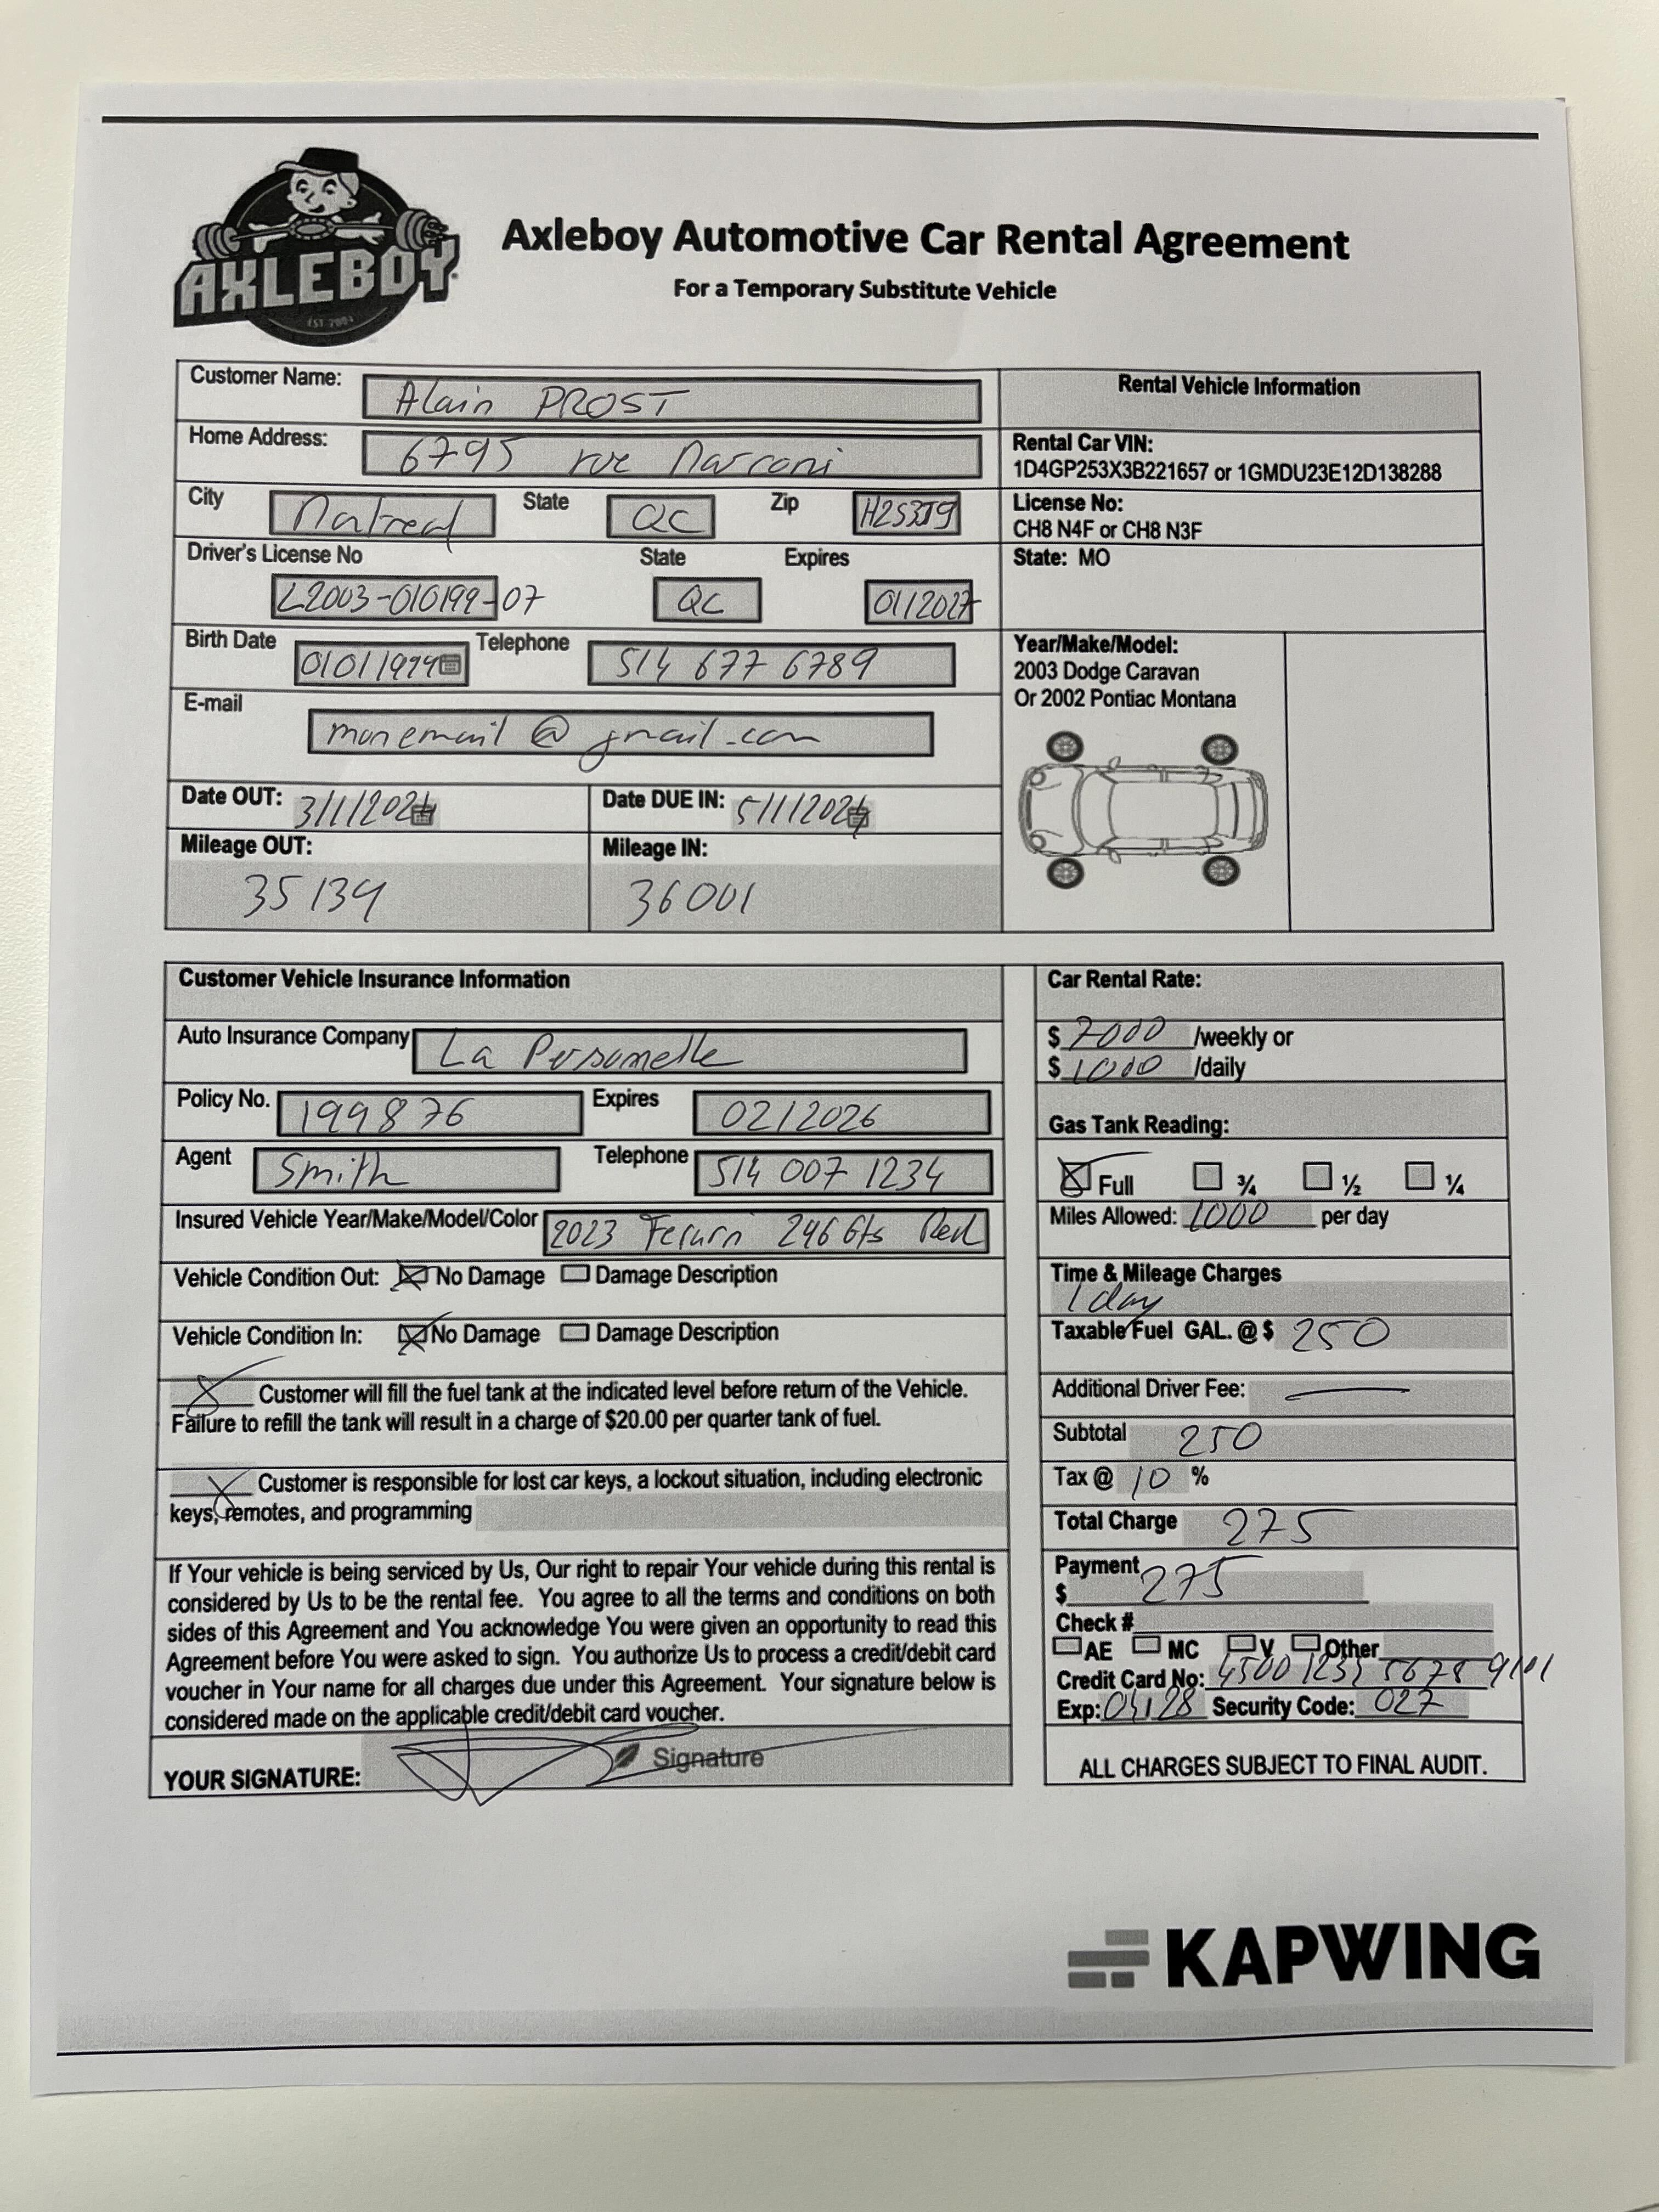 AXLEBOY
EST 2004
Axleboy Automotive Car Rental Agreement
For a Temporary Substitute Vehicle
Customer Name: Alain PROST
Home Address: 6795 rue Marconi
City Montreal State QC Zip H2S3J9
Driver's License No State Expires
L2003-010199-07 QC 01/2027
Birth Date 01011999 Telephone 514 677 6789
E-mail
monemail @ gmail.com
Date OUT: 3/1/2024 Date DUE IN: 5/1/2024
Mileage OUT: Mileage IN:
35134 36001
Rental Vehicle Information
Rental Car VIN:
1D4GP253X3B221657 or 1GMDU23E12D138288
License No:
CH8 N4F or CH8 N3F
State: MO
Year/Make/Model:
2003 Dodge Caravan
Or 2002 Pontiac Montana
Customer Vehicle Insurance Information
Auto Insurance Company La Personnelle
Policy No. 199876 Expires 02/2026
Agent Smith Telephone 514 007 1234
Insured Vehicle Year/Make/Model/Color 2023 Ferrari 296 Gts Red
Vehicle Condition Out: No Damage Damage Description
Vehicle Condition In: No Damage Damage Description
X Customer will fill the fuel tank at the indicated level before return of the Vehicle.
Failure to refill the tank will result in a charge of $20.00 per quarter tank of fuel.
X Customer is responsible for lost car keys, a lockout situation, including electronic
keys, remotes, and programming
If Your vehicle is being serviced by Us, Our right to repair Your vehicle during this rental is
considered by Us to be the rental fee. You agree to all the terms and conditions on both
sides of this Agreement and You acknowledge You were given an opportunity to read this
Agreement before You were asked to sign. You authorize Us to process a credit/debit card
voucher in Your name for all charges due under this Agreement. Your signature below is
considered made on the applicable credit/debit card voucher.
YOUR SIGNATURE: Signature
Car Rental Rate:
$ 7000 /weekly or
$ 1000 /daily
Gas Tank Reading:
Full ¾ ½ ¼
Miles Allowed: 1000 per day
Time & Mileage Charges
1 day
Taxable Fuel GAL. @ $ 250
Additional Driver Fee: —
Subtotal 250
Tax @ 10 %
Total Charge 275
Payment
$ 275
Check #
AE MC V Other
Credit Card No: 4500 1234 5678 9101
Exp: 04/28 Security Code: 027
ALL CHARGES SUBJECT TO FINAL AUDIT.
KAPWING